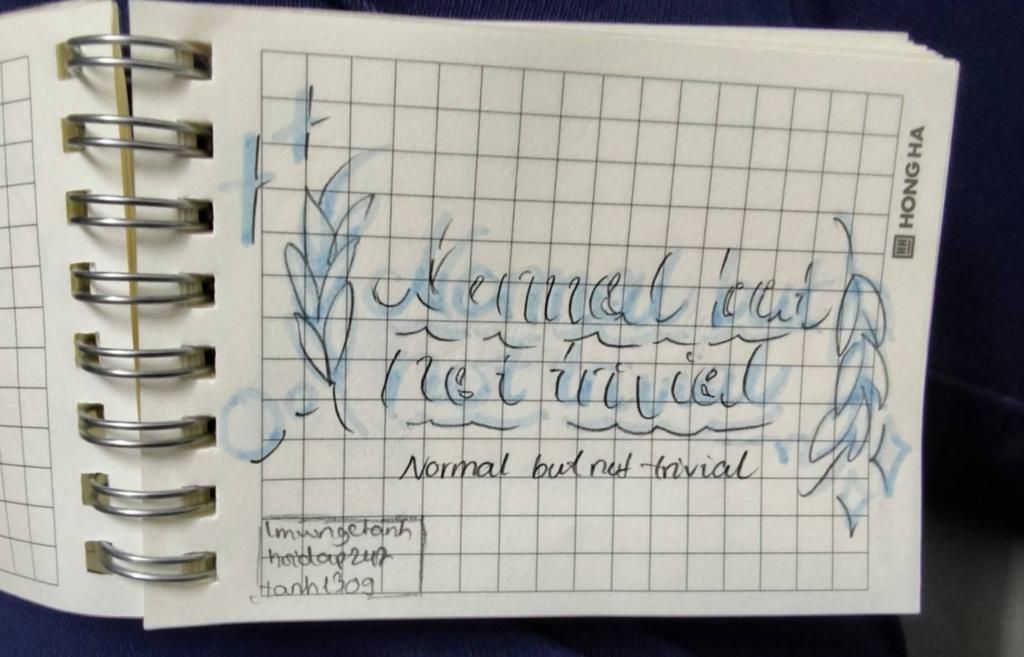 Normal but
not trivial
Normal but not trivial
hoidap247
HONG HA